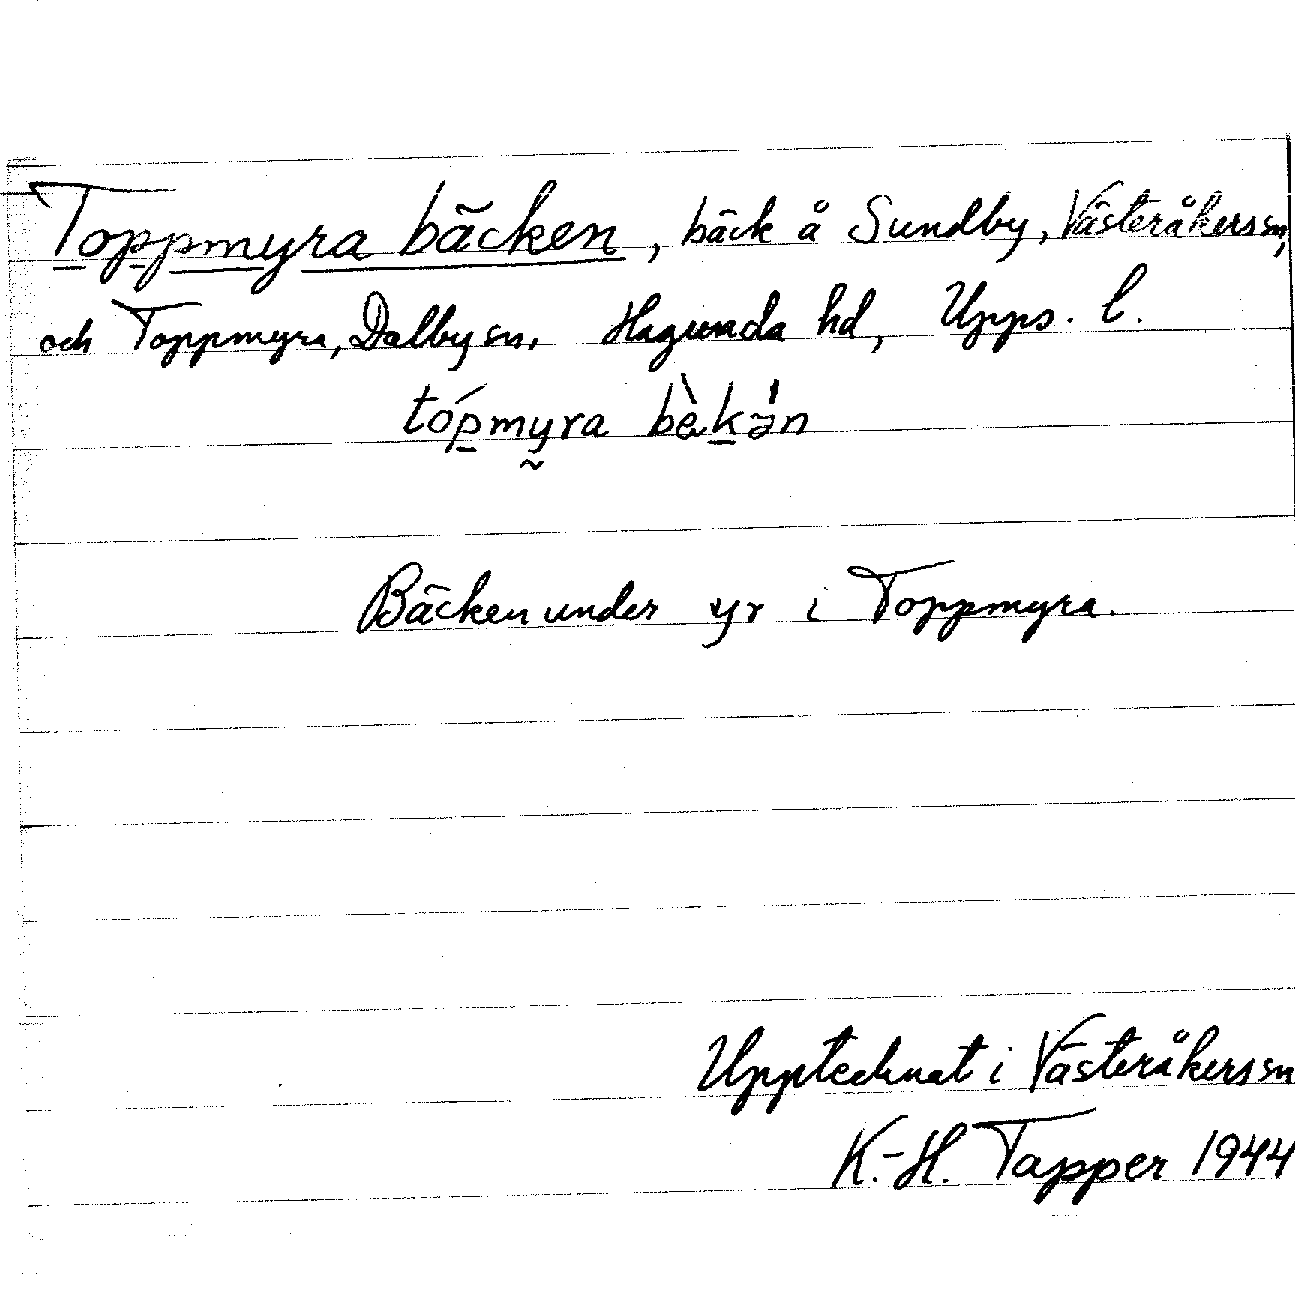 Toppmyra bäcken, bäck å Sundby, Västeråkers sn,
och Toppmyra, Dalby sn. Hagunda hd, Upps. l.
tópmyra bèkə̀n
Bäcken under yr i Toppmyra.
Upptecknat i Västeråkers sn
K.-H. Tapper 1944